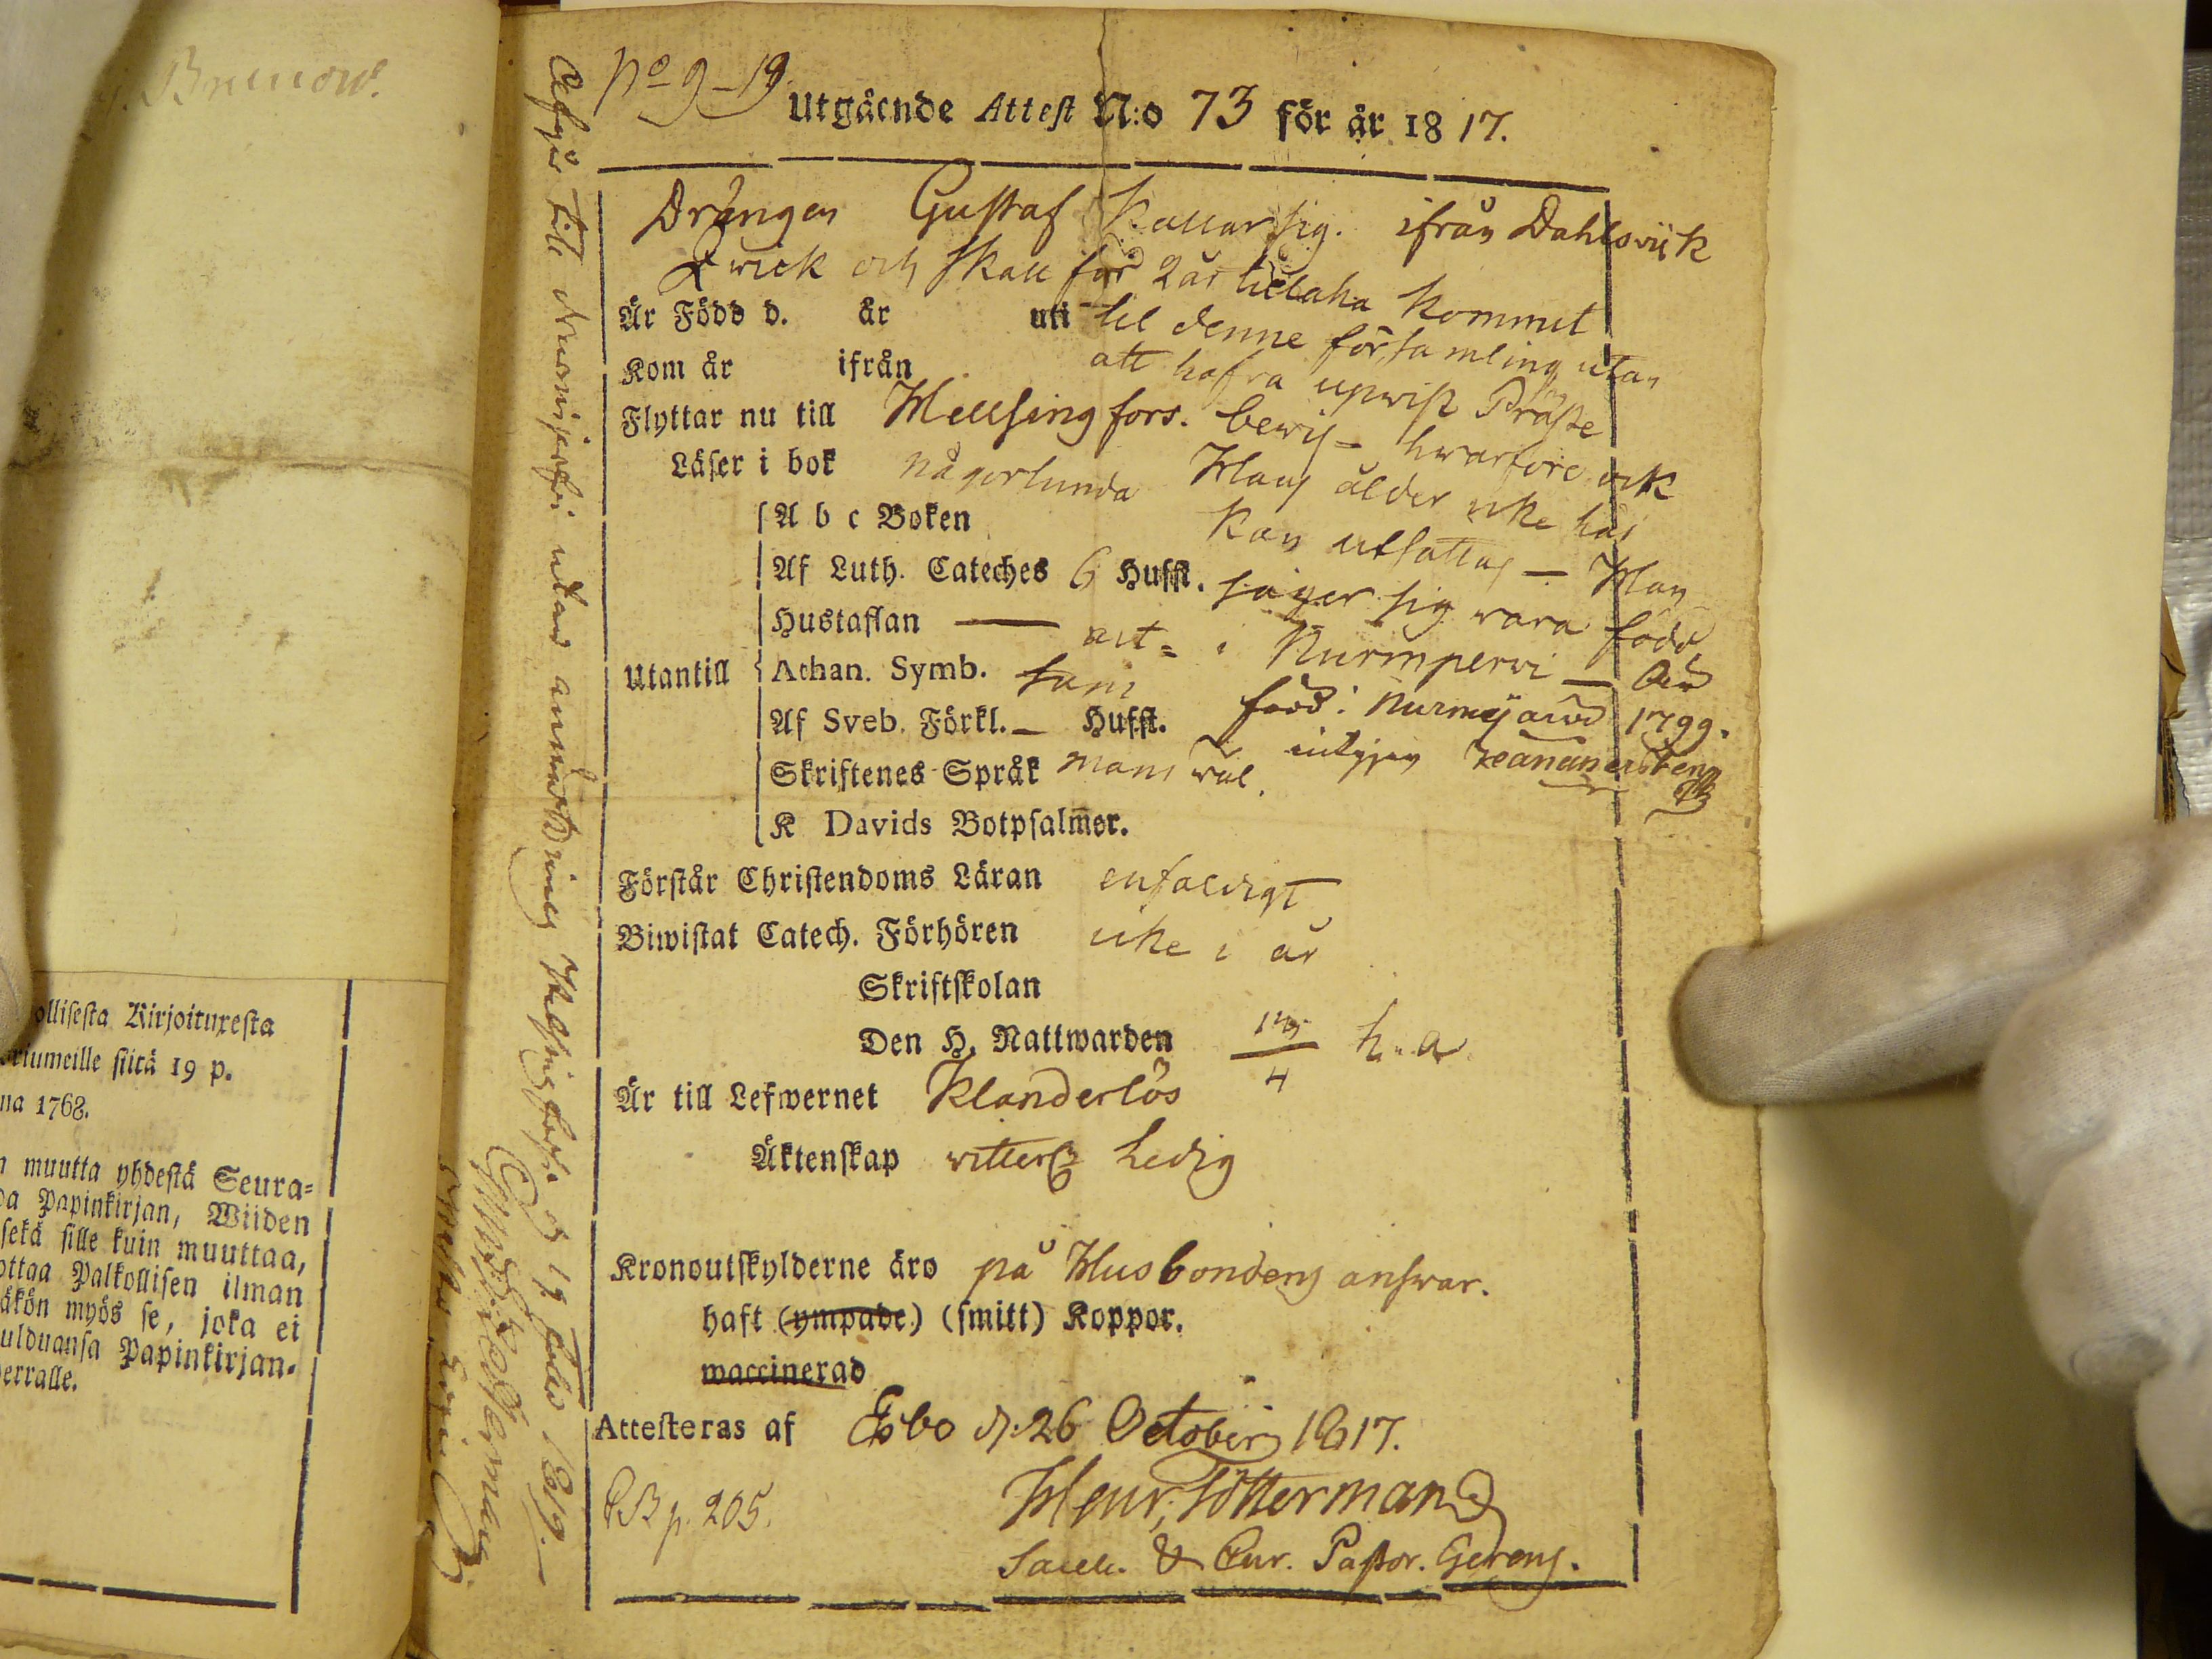 Brunow.
No 9-19.
Utgående Attest N:o 73 för år 1817.
Drängen Gustaf Kallar sig. ifrån Dahlsviik
Qwick och skall för 2 år tillbaka kommit
Är Född d. år uti til denne församling utan
Kom år ifrån att hafva upwist Präste
Flyttar nu till Hellsingfors. bewis- hwarföre ock
Läser i bok någorlunda Hans ålder icke här
A b c Boken kan utsättas — Han
Af Luth. Cateches 6 Hufst. säger sig vara född
Hustaflan — i Nurmijervi —
Utantill Athan. Symb.
Af Sveb. Förkl. — Hufst. född i Nurmijärvi 1799.
Skriftenes Språk intygas
K Davids Botpsalmer.
Förstår Christendoms Läran enfaldigt
Biwistat Catech. Förhören icke i år
Skriftskolan
Den H. Nattwarden h. a.
Är till Lefwernet Klanderlös
Äktenskap witterl. Ledig
Kronoutskylderne äro på Husbondens answar.
haft (ympade) (smitt) Koppor.
waccinerad
Attesteras af Esbo d. 26 October 1817.
Henr. Tötterman
p. 205.
Sacell. & Cur. Pastor. Gerens.
Afgår till Nurmijerfvi utan anmärkning Helsingfors d 19 1819.
ollisesta Kirjoituxesta
oriumeille siitä 19 p.
na 1768.
n muutta yhdestä Seura-
da Papinkirjan, Wiiden
sekä sille kuin muuttaa,
ottaa Palkollisen ilman
äkön myös se, joka ei
ulduansa Papinkirjan-
erralle.